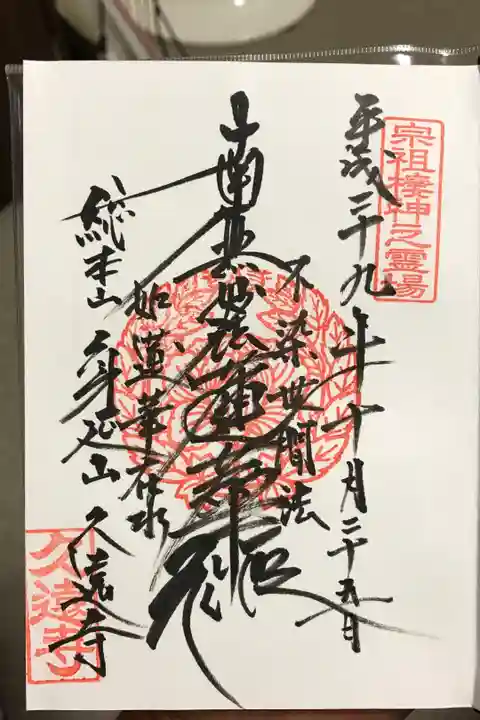 宗祖棲神之霊場
平成二十九年十月二十五日
不染世間法
南無妙法蓮華経
如蓮華在水
総本山 身延山 久遠寺
久遠寺